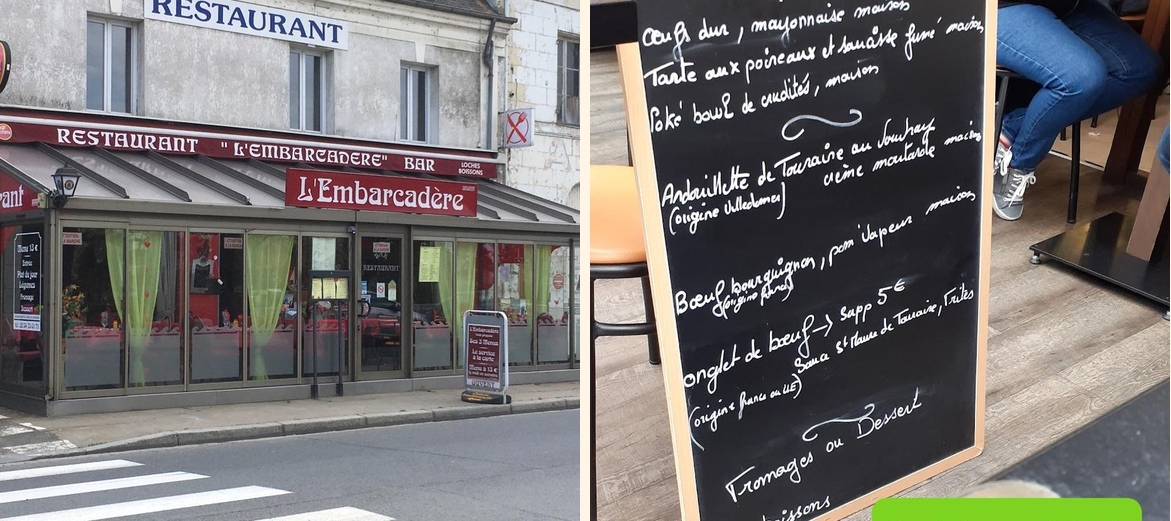 RESTAURANT
RESTAURANT "L'EMBARCADERE" BAR
LOCHES
BOISSONS
L'Embarcadère
rant
Menu 13 €
Entrée
Plat du jour
Légumes
Fromage
Dessert
RESTAURANT
L'Embarcadère
Ses 3 Menus
Le service
à la carte
Menu à 13 €
OUVERT
oeufs dur, mayonnaise maison
Tarte aux poireaux et saucisse fumé maison
Poké bowl de crudités, maison
Andouillette de Touraine au Vouvray
crème moutarde maison
Boeuf bourguignon, pom' vapeur maison
(origine france)
onglet de boeuf → supp 5€
Sauce St Maure de Touraine, Frites
(origine france ou UE)
Fromages ou Dessert
boissons